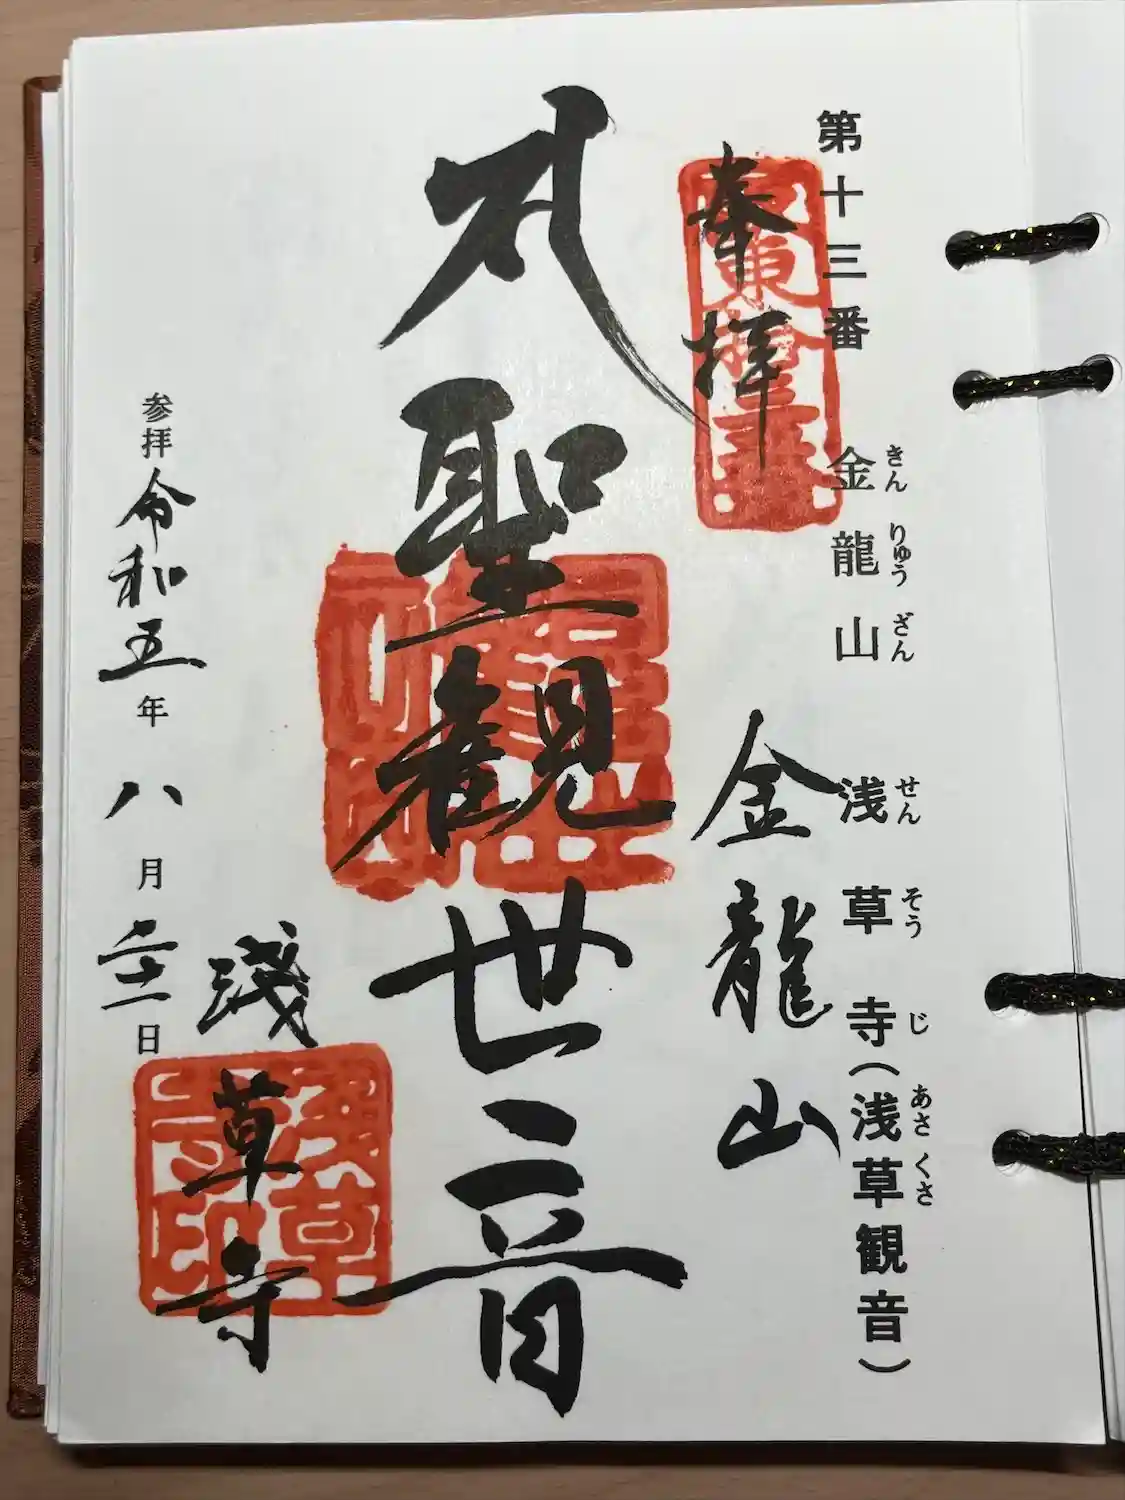 きん りゅう ざん せん そう じ あさ くさ
第十三番 金龍山 浅草寺(浅草観音)
奉拝 金龍山
坂東拾三番
聖観世音
淺草寺
浅草寺印
参拝 令和五年 八月二十一日